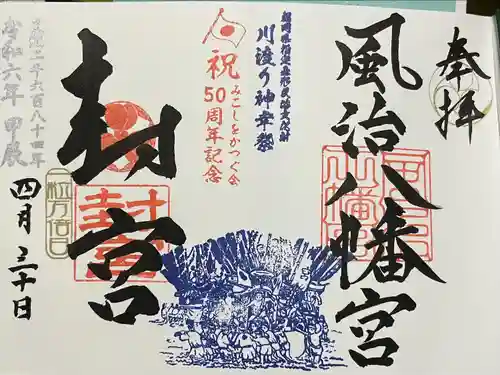 奉拝
風治八幡宮
福岡県指定無形民俗文化財
川渡り神幸祭
祝
50周年記念
みこしをかつぐ会
封宮
一粒万倍日
皇紀二千六百八十四年
令和六年 甲辰
四月三十日